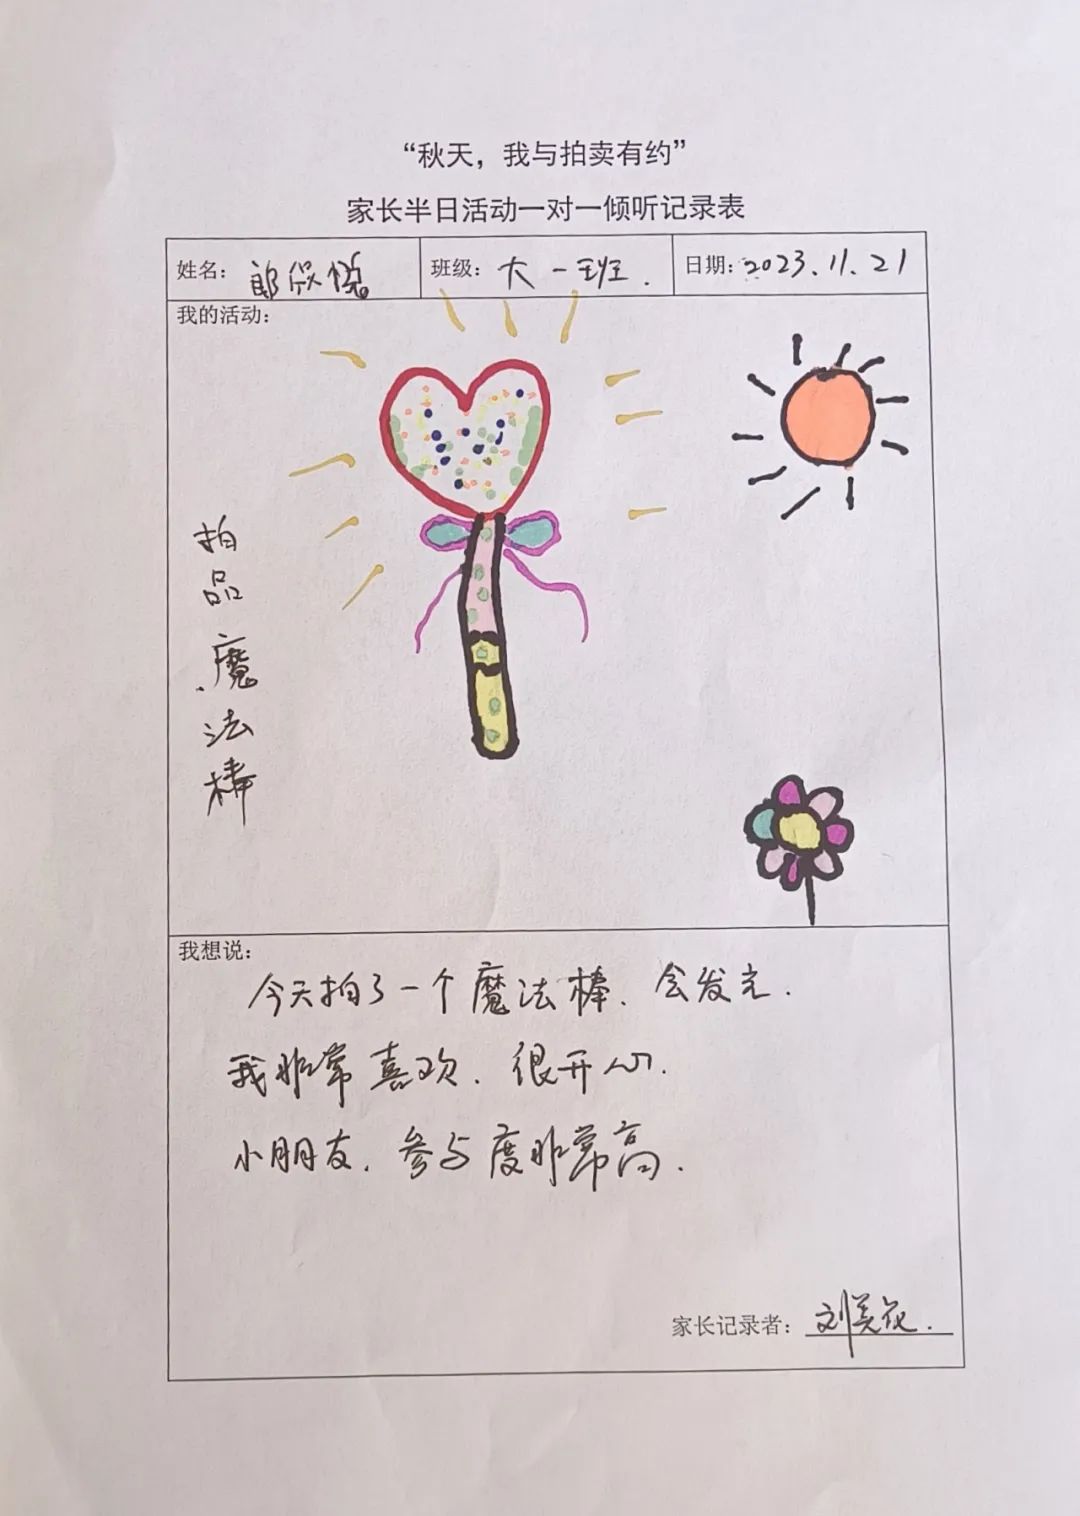 “秋天，我与拍卖有约”
家长半日活动一对一倾听记录表
姓名： 郎欣悦
班级： 大一班.
日期： 2023.11.21
我的活动：
拍品魔法棒
我想说：
今天拍了一个魔法棒. 会发光.
我非常喜欢. 很开心.
小朋友. 参与度非常高.
家长记录者： 刘美花.